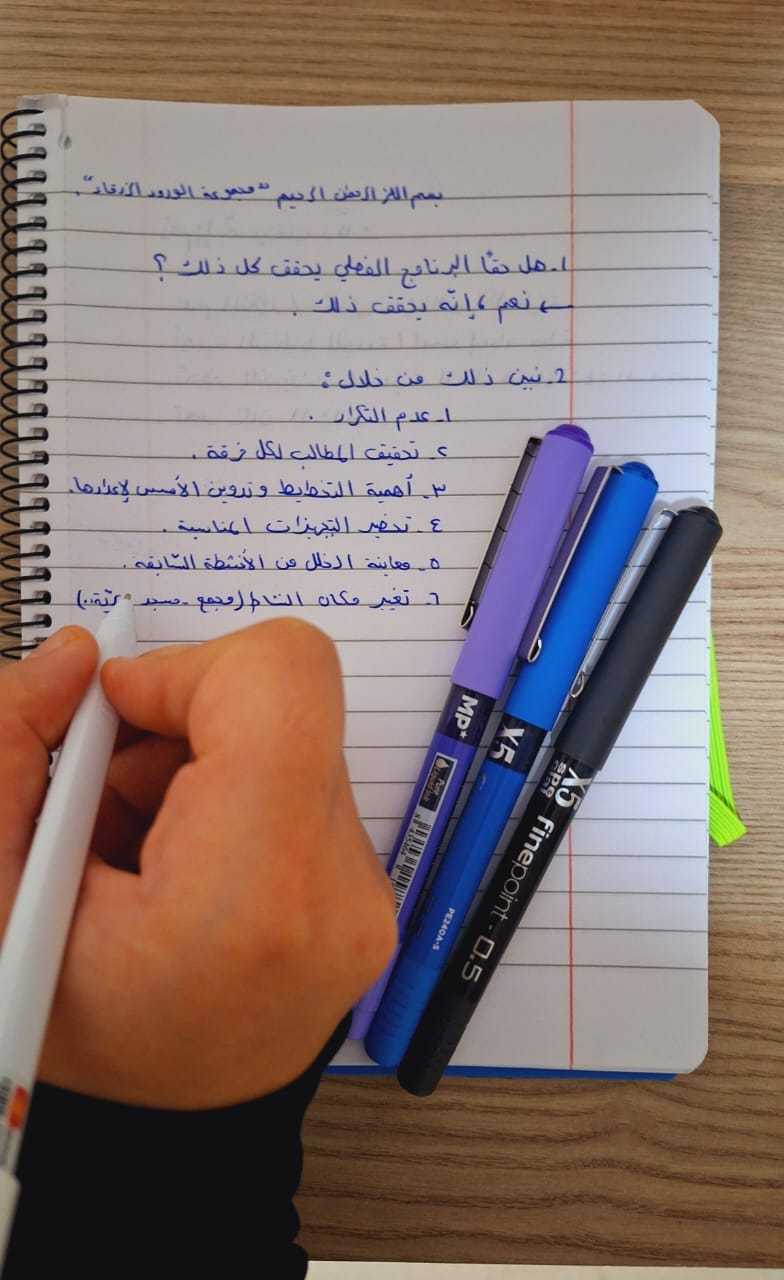 بسم الله الرحمن الرحيم "مجموعة الورود الزرقاء".
1. هل حقًا البرنامج الفعلي يحقق كل ذلك ؟
← نعم، إنّه يحقق ذلك .
2. نبين ذلك من خلال :
١. عدم التكرار .
٢. تحقيق المطالب لكل فرقة .
٣. أهمية التخطيط وتدوين الأسس لإعدادها.
٤. تحضير التجهيزات المناسبة .
٥. معاينة الخلل من الأنشطة السّابقة .
٦. تغير مكان النشاط (مجمع - مسجد
MP*
X5
PE240A-S
X5
finepoint - 0.5